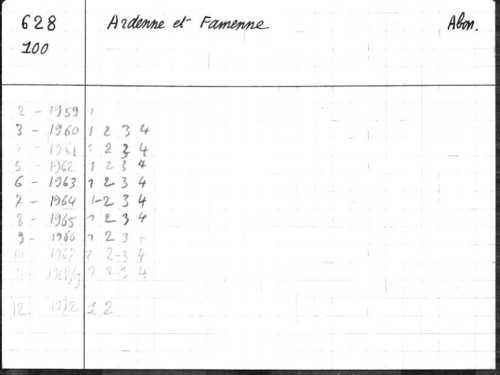 628 Ardenne et Famenne Abon.
100
2 - 1959 1
3 - 1960 1 2 3 4
1961 1 2 3 4
5 - 1962 1 2 3 4
6 - 1963 1 2 3 4
7 - 1964 1-2 3 4
8 - 1965 1 2 3 4
9 - 1966 1 2 3
10 - 1967 1 2-3 4
1 2-3 4
12. 1972 1 2